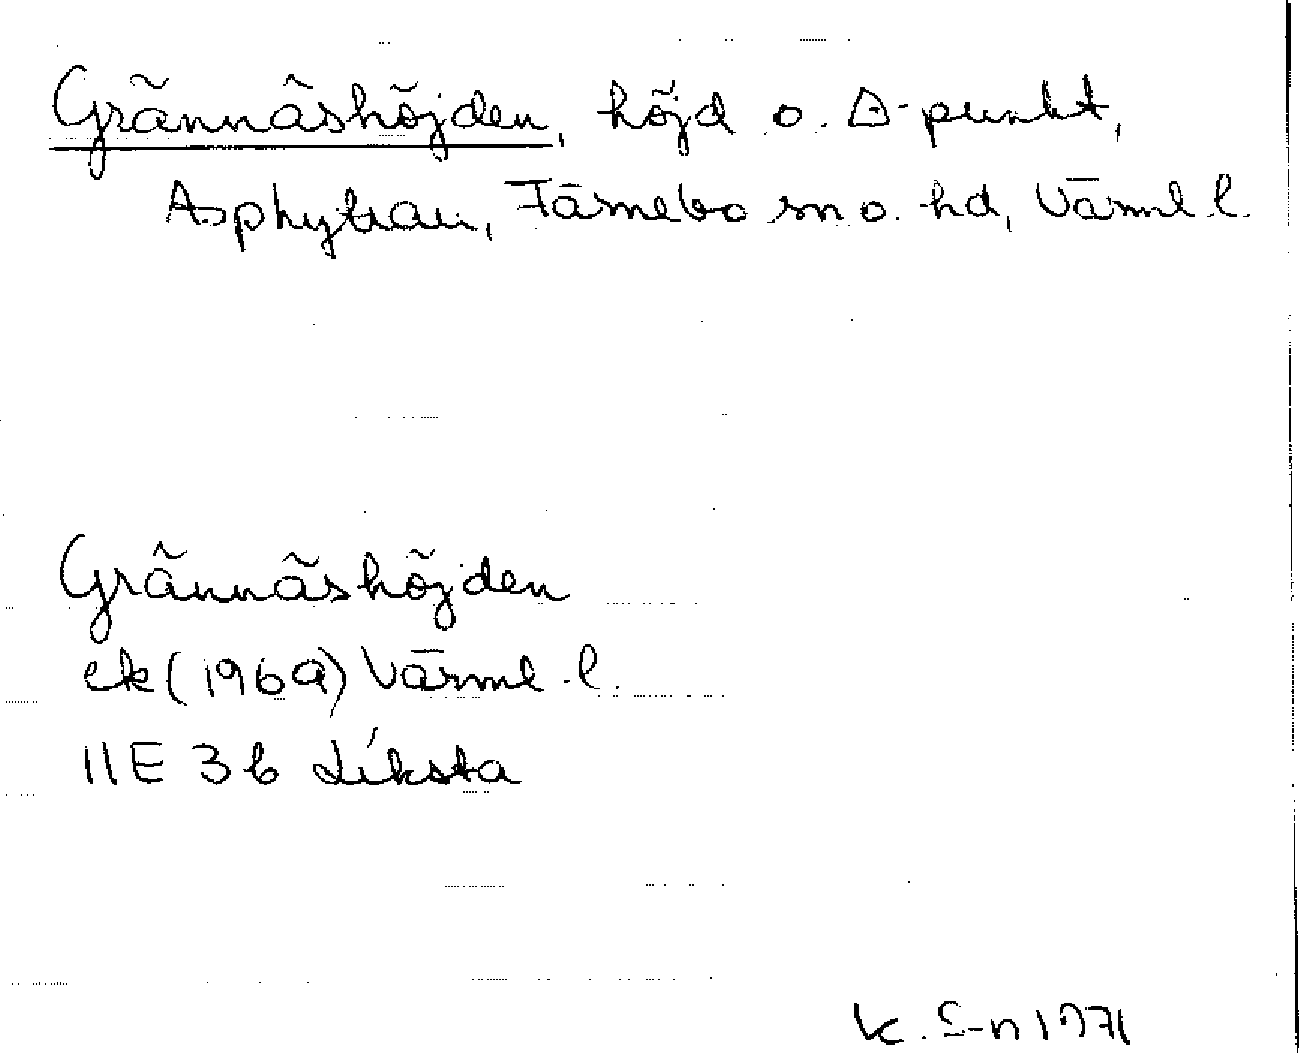 Grännäshöjden, höjd o. Δ-punkt,
Asphyttan, Färnebo sn o. hd, Värml. l.
Grännäshöjden
ek (1969) Värml. l.
11E 3b Liksta
K. S-n 1971